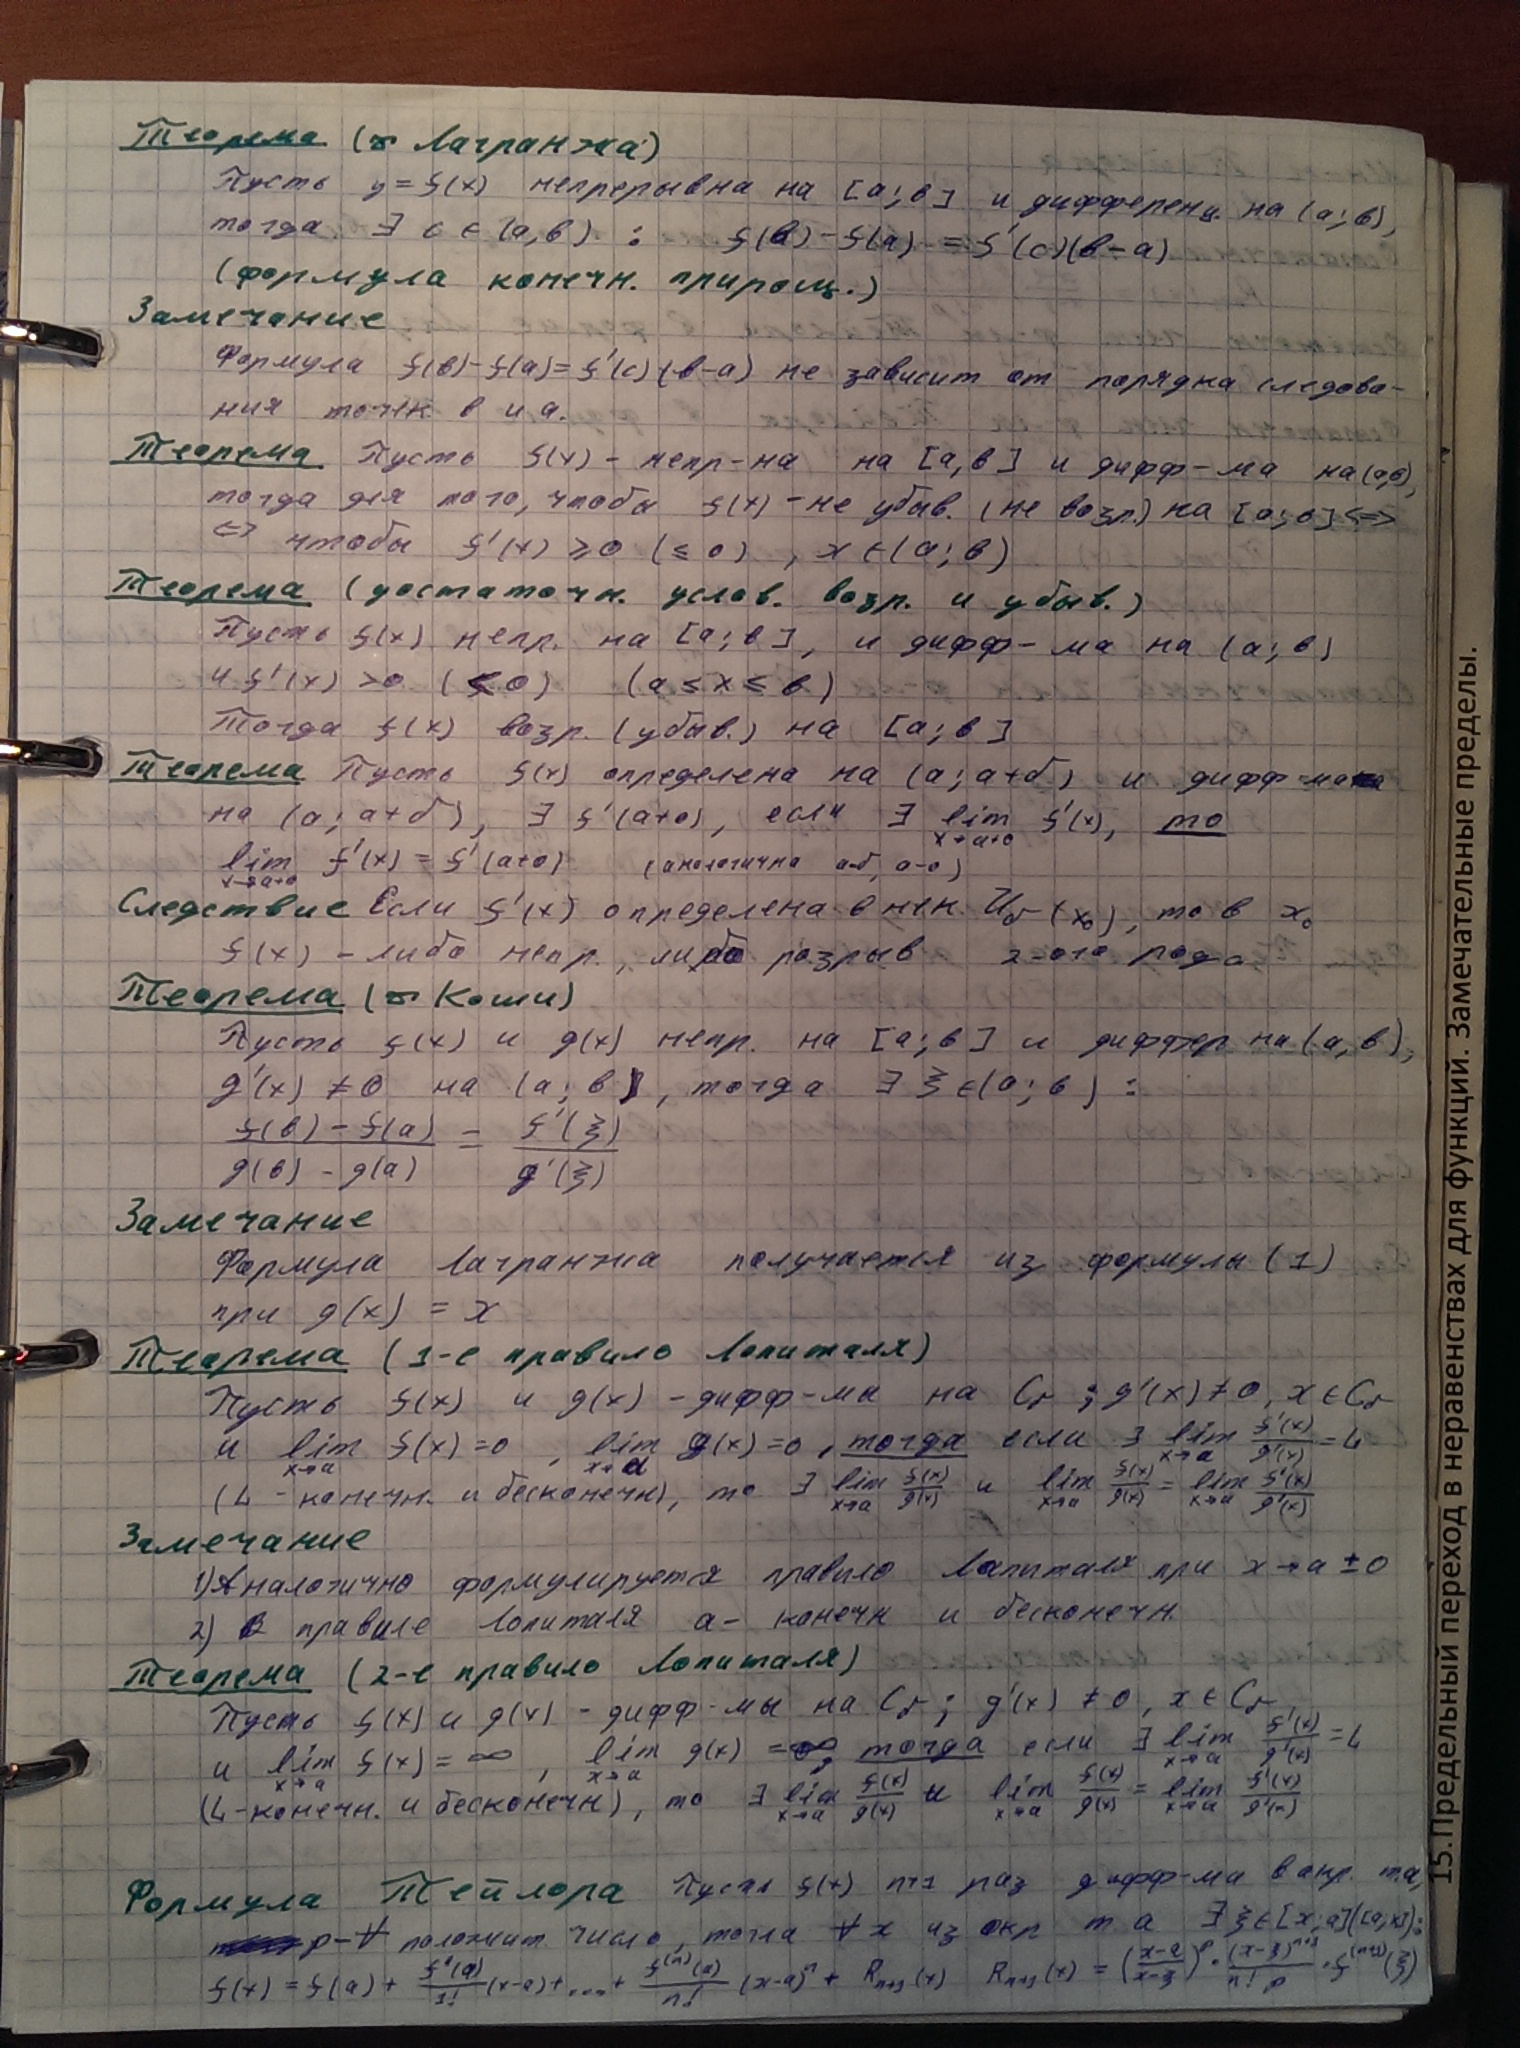 Теорема (т Лагранжа)
Пусть y = f(x) непрерывна на [a; в] и дифференц. на (a; в),
тогда ∃ c ∈ (a, в) : f(в) - f(a) = f'(c)(в-a)
(формула конечн. прирощ.)
Замечание
Формула f(в)-f(a)=f'(c)(в-a) не зависит от порядка следова-
ния точек в и a.
Теорема Пусть f(x) - непр-на на [a, в] и дифф-ма на (a,в),
тогда для того, чтобы f(x) - не убыв. (не возр.) на [a; в] <=>
<=> чтобы f'(x) ≥ 0 (≤ 0) , x ∈ (a; в)
Теорема (достаточн. услов. возр. и убыв.)
Пусть f(x) непр. на [a; в], и дифф-ма на (a; в)
и f'(x) > 0 (< 0) (a ≤ x ≤ в)
Тогда f(x) возр. (убыв.) на [a; в]
Теорема Пусть f(x) определена на (a; a+δ) и дифф-ма
на (a; a+δ), ∃ f'(a+0), если ∃ lim x→a+0 f'(x), то
lim x→a+0 f'(x) = f'(a+0) (аналогична a-δ, a-0)
Следствие Если f'(x) определена в нек. Uδ(x₀), то в x₀
f(x) - либо непр., либо разрыв 2-ого рода
Теорема (т Коши)
Пусть f(x) и g(x) непр. на [a; в] и диффер на (a, в),
g'(x) ≠ 0 на (a; в), тогда ∃ ξ ∈ (a; в) :
(f(в) - f(a))/(g(в) - g(a)) = f'(ξ)/g'(ξ)
Замечание
Формула Лагранжа получается из формулы (1)
при g(x) = x
Теорема (1-е правило Лопиталя)
Пусть f(x) и g(x) - дифф-мы на Cr ; g'(x) ≠ 0, x ∈ Cr
и lim x→a f(x) = 0 , lim x→a g(x) = 0, тогда если ∃ lim x→a f'(x)/g'(x) = L
(L - конечн. и бесконечн), то ∃ lim x→a f(x)/g(x) и lim x→a f(x)/g(x) = lim x→a f'(x)/g'(x)
Замечание
1) Аналогично формулируется правило Лопиталя при x→a ± 0
2) В правиле Лопиталя a - конечн и бесконечн.
Теорема (2-е правило Лопиталя)
Пусть f(x) и g(x) - дифф-мы на Cr ; g'(x) ≠ 0, x ∈ Cr
и lim x→a f(x) = ∞ , lim x→a g(x) = ∞, тогда если ∃ lim x→a f'(x)/g'(x) = L
(L - конечн. и бесконечн), то ∃ lim x→a f(x)/g(x) и lim x→a f(x)/g(x) = lim x→a f'(x)/g'(x)
Формула Тейлора Пусть f(x) n+1 раз дифф-ма в окр. т.a,
p - ∀ положит. число, тогда ∀ x из окр т a ∃ ξ ∈ [x; a] ([a; x]):
f(x) = f(a) + f'(a)/1! (x-a) + ... + f⁽ⁿ⁾(a)/n! (x-a)ⁿ + Rₙ₊₁(x) Rₙ₊₁(x) = ((x-a)/(x-ξ))ᵖ · (x-ξ)ⁿ⁺¹/(n! p) · f⁽ⁿ⁺¹⁾(ξ)
15.Предельный переход в неравенствах для функций. Замечательные пределы.